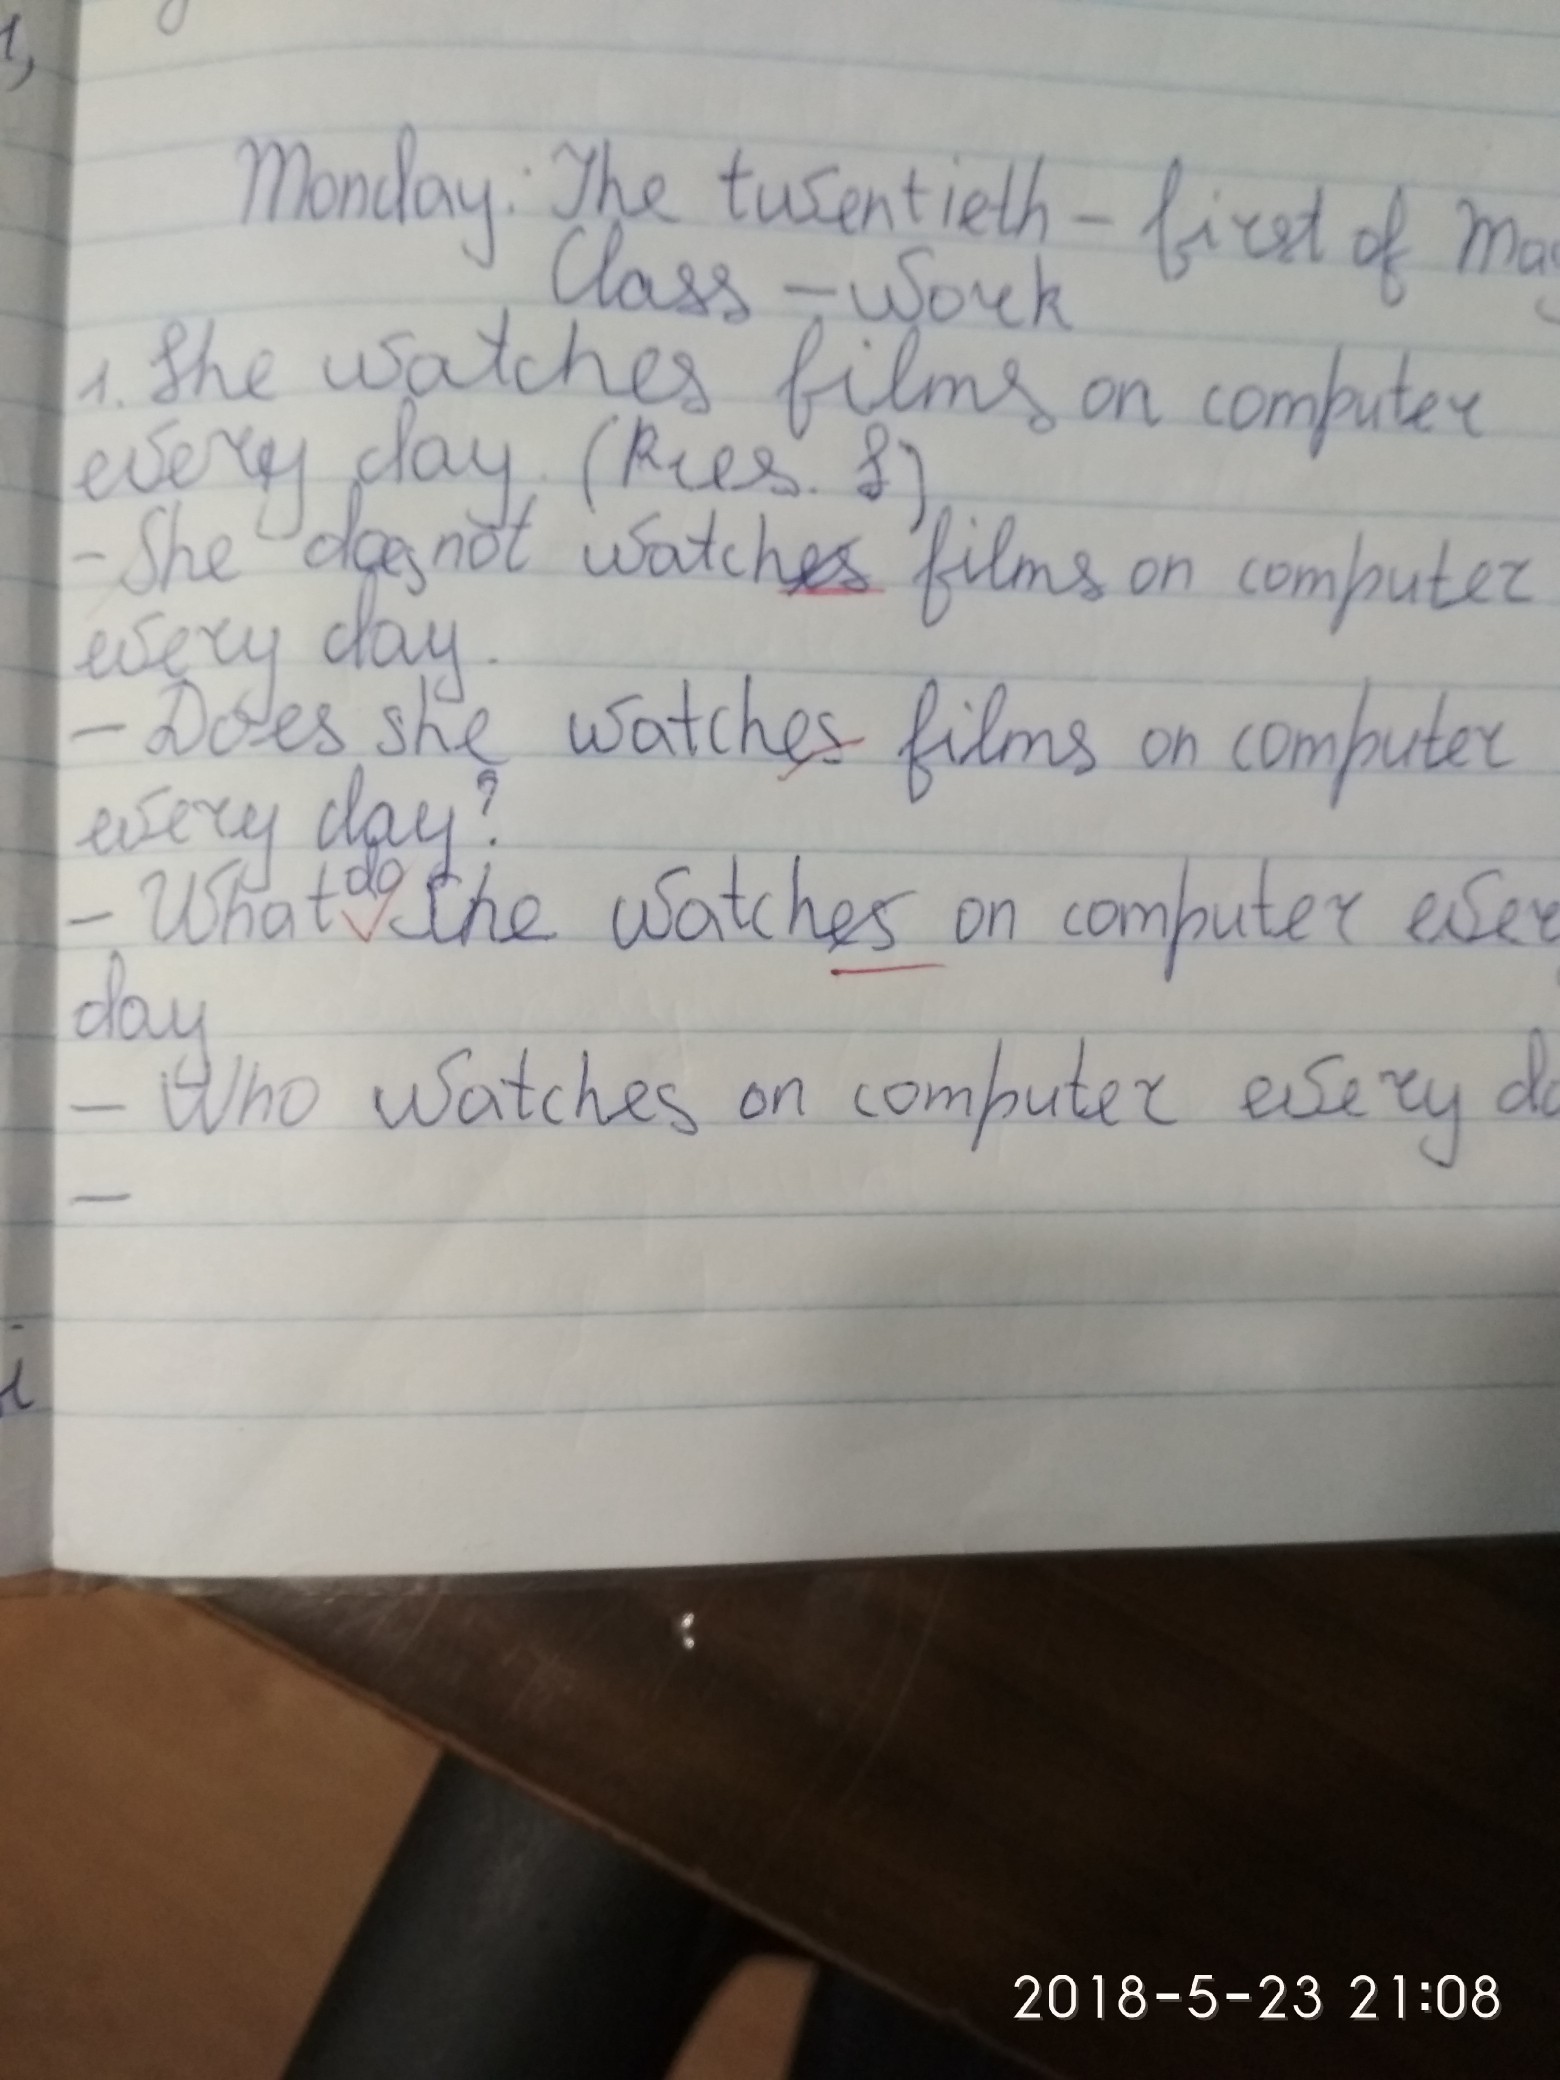 Monday. The twentieth - first of May
Class - work
1. She watches films on computer
every day. (Pres. S)
- She does not watches films on computer
every day.
- Does she watches films on computer
every day?
- What do she watches on computer every
day
- Who watches on computer every da
-
2018-5-23 21:08